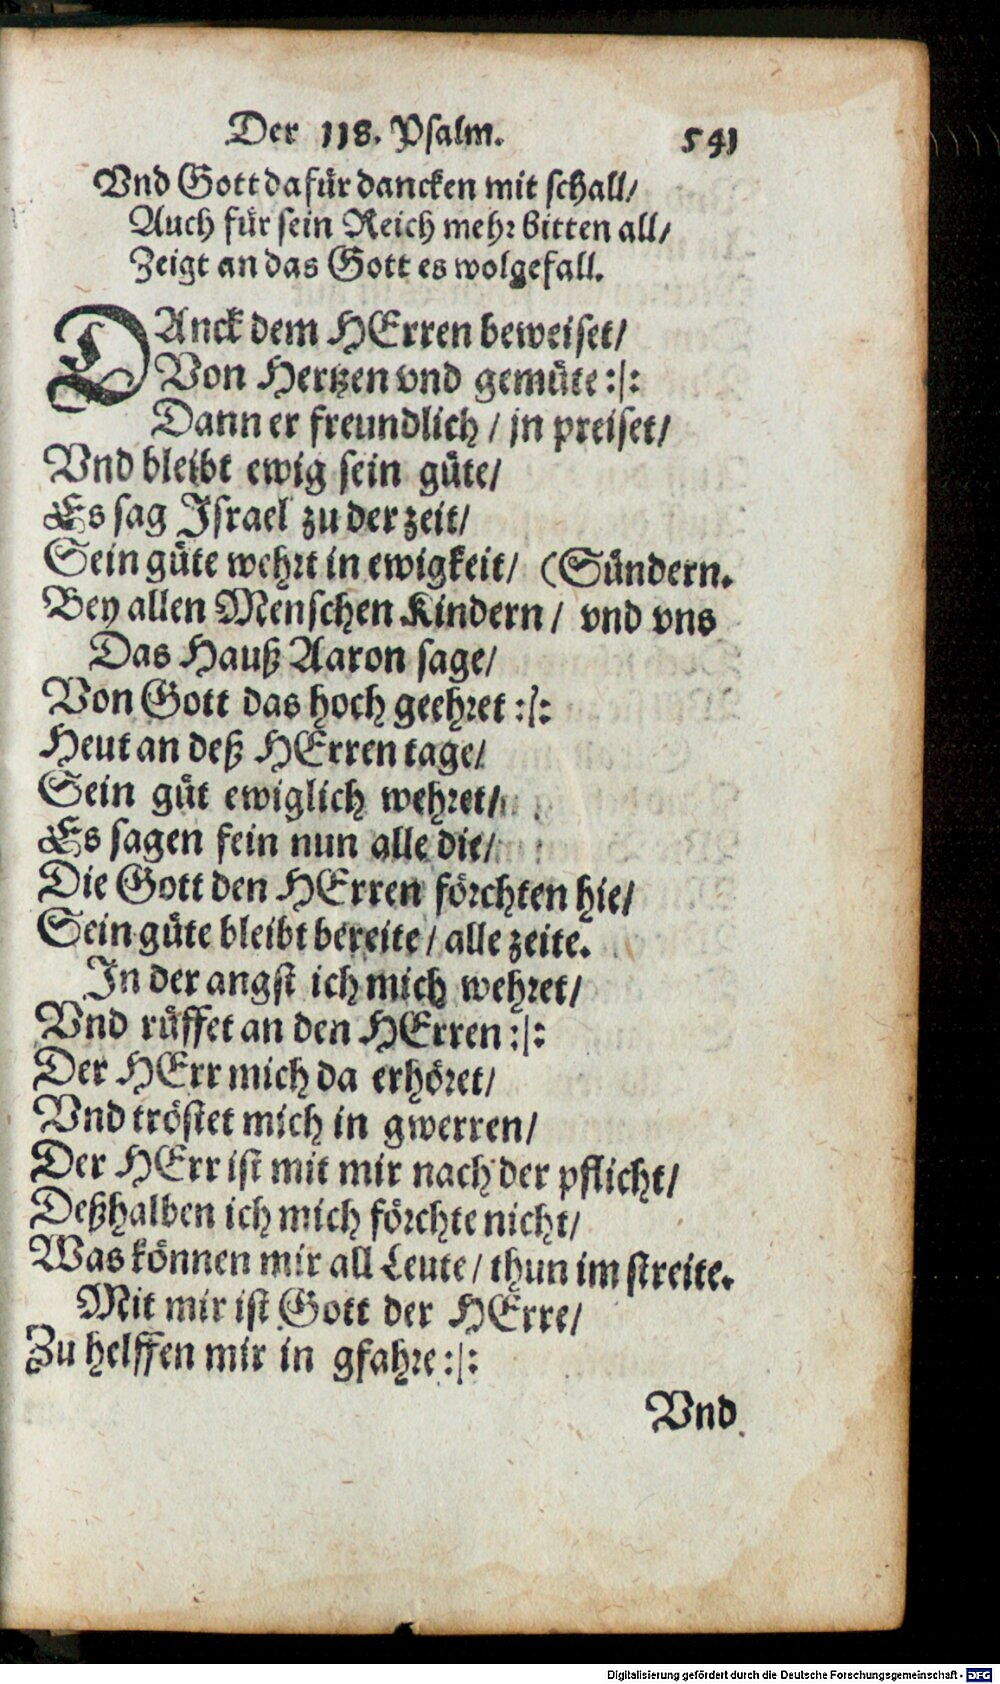 Der 118. Psalm. 541
Vnd Gott dafür dancken mit schall/
Auch für sein Reich mehr bitten all/
Zeigt an das Gott es wolgefall.
DAnck dem HErren beweiset/
Von Hertzen vnd gemüte :|:
Dann er freundlich / jn preiset/
Vnd bleibt ewig sein güte/
Es sag Israel zu der zeit/
Sein güte wehrt in ewigkeit/ (Sündern.
Bey allen Menschen Kindern / vnd vns
Das Hauß Aaron sage/
Von Gott das hoch geehret :|:
Heut an deß HErren tage/
Sein güt ewiglich wehret/
Es sagen fein nun alle die/
Die Gott den HErren förchten hie/
Sein güte bleibt bereite / alle zeite.
In der angst ich mich wehret/
Vnd rüffet an den HErren :|:
Der HErr mich da erhöret/
Vnd tröstet mich in gwerren/
Der HErr ist mit mir nach der pflicht/
Deßhalben ich mich förchte nicht/
Was können mir all Leute / thun im streite.
Mit mir ist Gott der HErre/
Zu helffen mir in gfahre :|:
Vnd
Digitalisierung gefördert durch die Deutsche Forschungsgemeinschaft - DFG